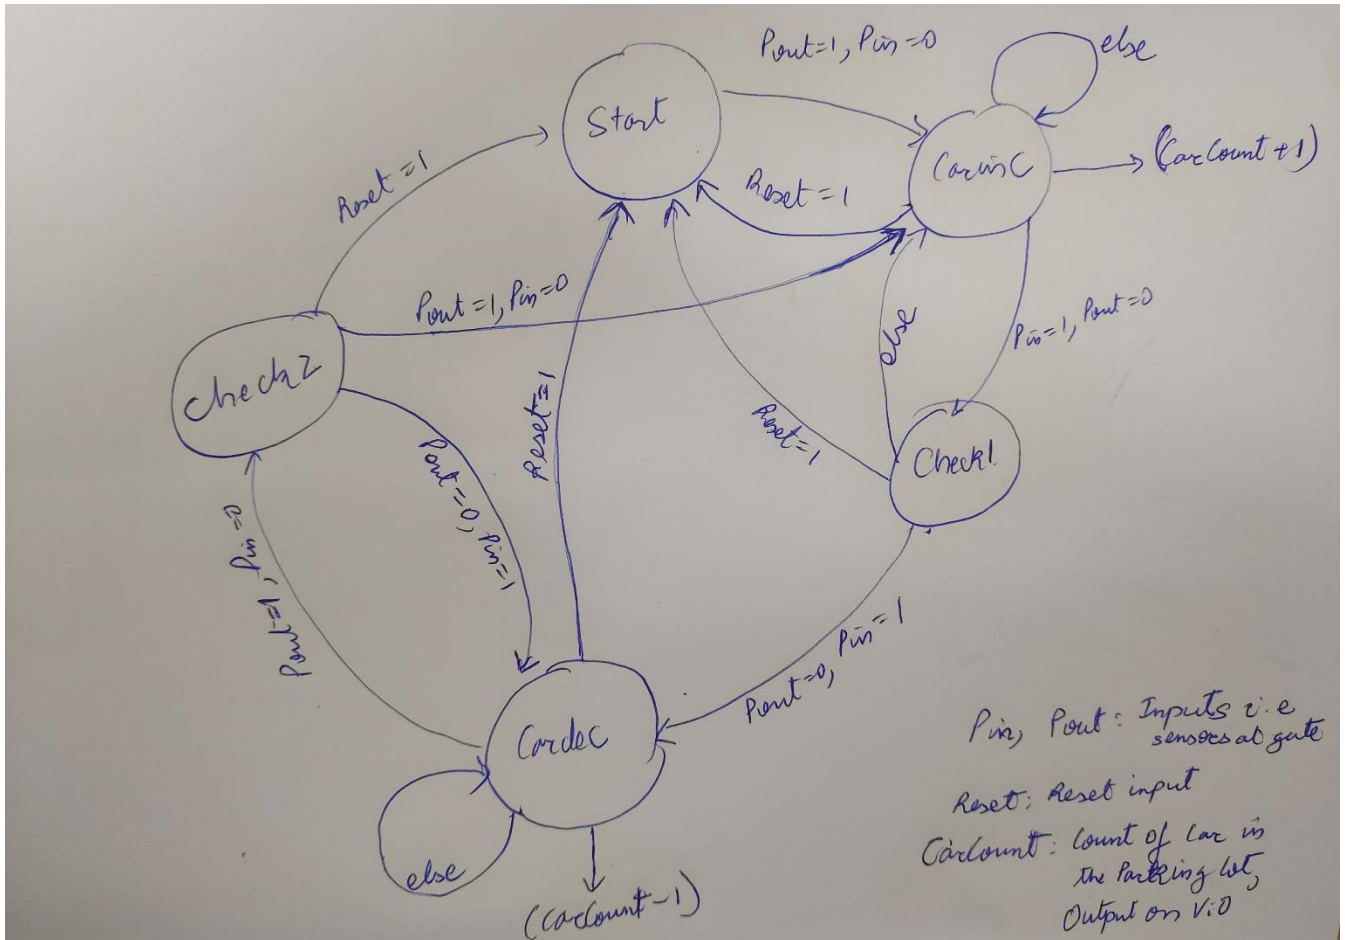 Pout=1, Pin=0
else
Start
CarinC
(CarCount+1)
Reset=1
Reset=1
Pout=1, Pin=0
Pin=1, Pout=0
else
Check2
Reset=1
Reset=1
Check1
Pout=0, Pin=1
Pout=1, Pin=0
Pout=0, Pin=1
Cardec
else
(CarCount-1)
Pin, Pout: Inputs i.e
sensors at gate
Reset: Reset input
CarCount: Count of Car in
the Parking lot,
Output on ViO